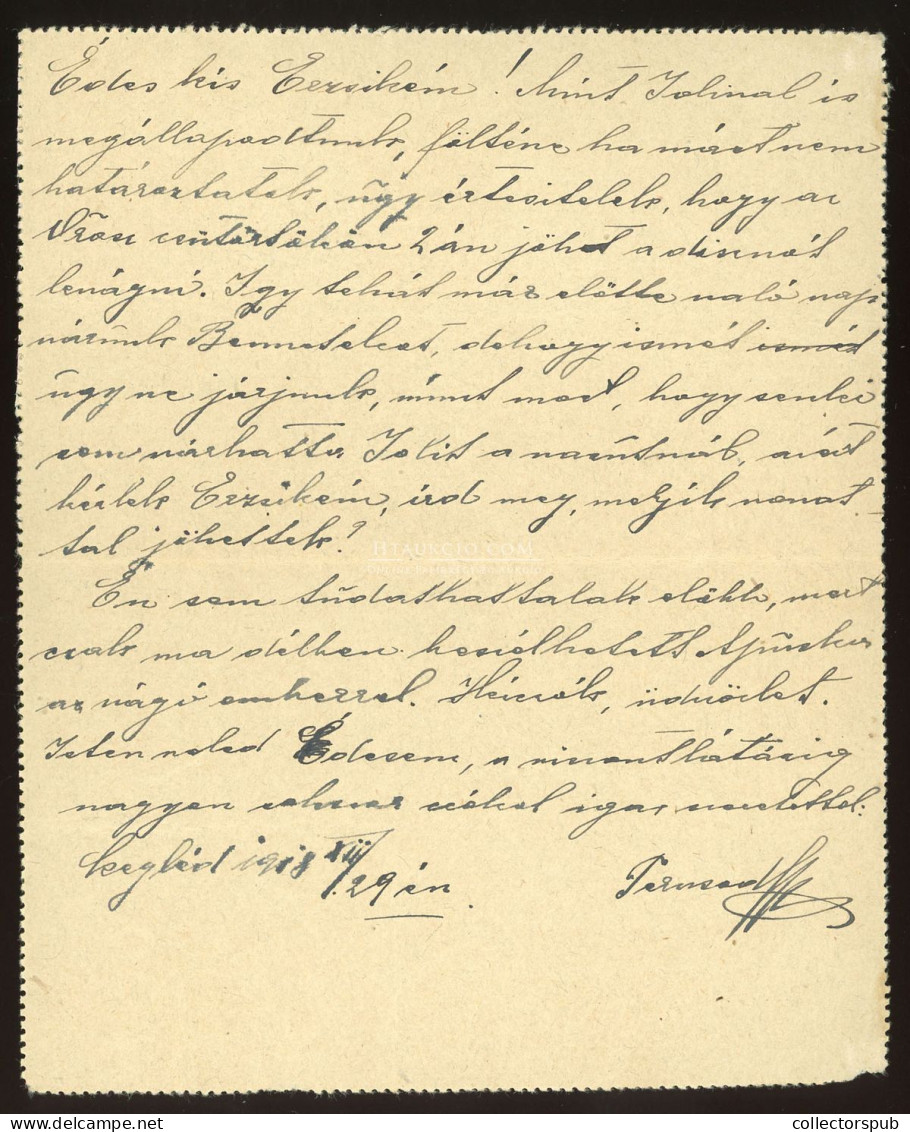 Édes kis Erzsikém! Mint Jolinál is
megállapodtunk, föltéve ha mást nem
határoztatok, úgy értesitelek, hogy az
csütörtökön 2án jöhet a disznót
levágni. Igy tehát már előtte való nap
várunk Benneteket, dehogy ismét ismét
úgy ne járjunk, mint most, hogy senki
sem várhatta Jolit a vasútnál, azért
kérlek Erzsikém, ird meg, melyik vonat
tal jöhettek?
HTAUKCIO.COM
Én sem tudathattalak előbb, mert
csak ma délben beszélhetett Apuska
az vágó emberrel.
Isten veled Édesem, a viszontlátásig
nagyon sokszor csókol igaz szeretettel:
Czegléd 1918 XII/
29 én
collectorspub